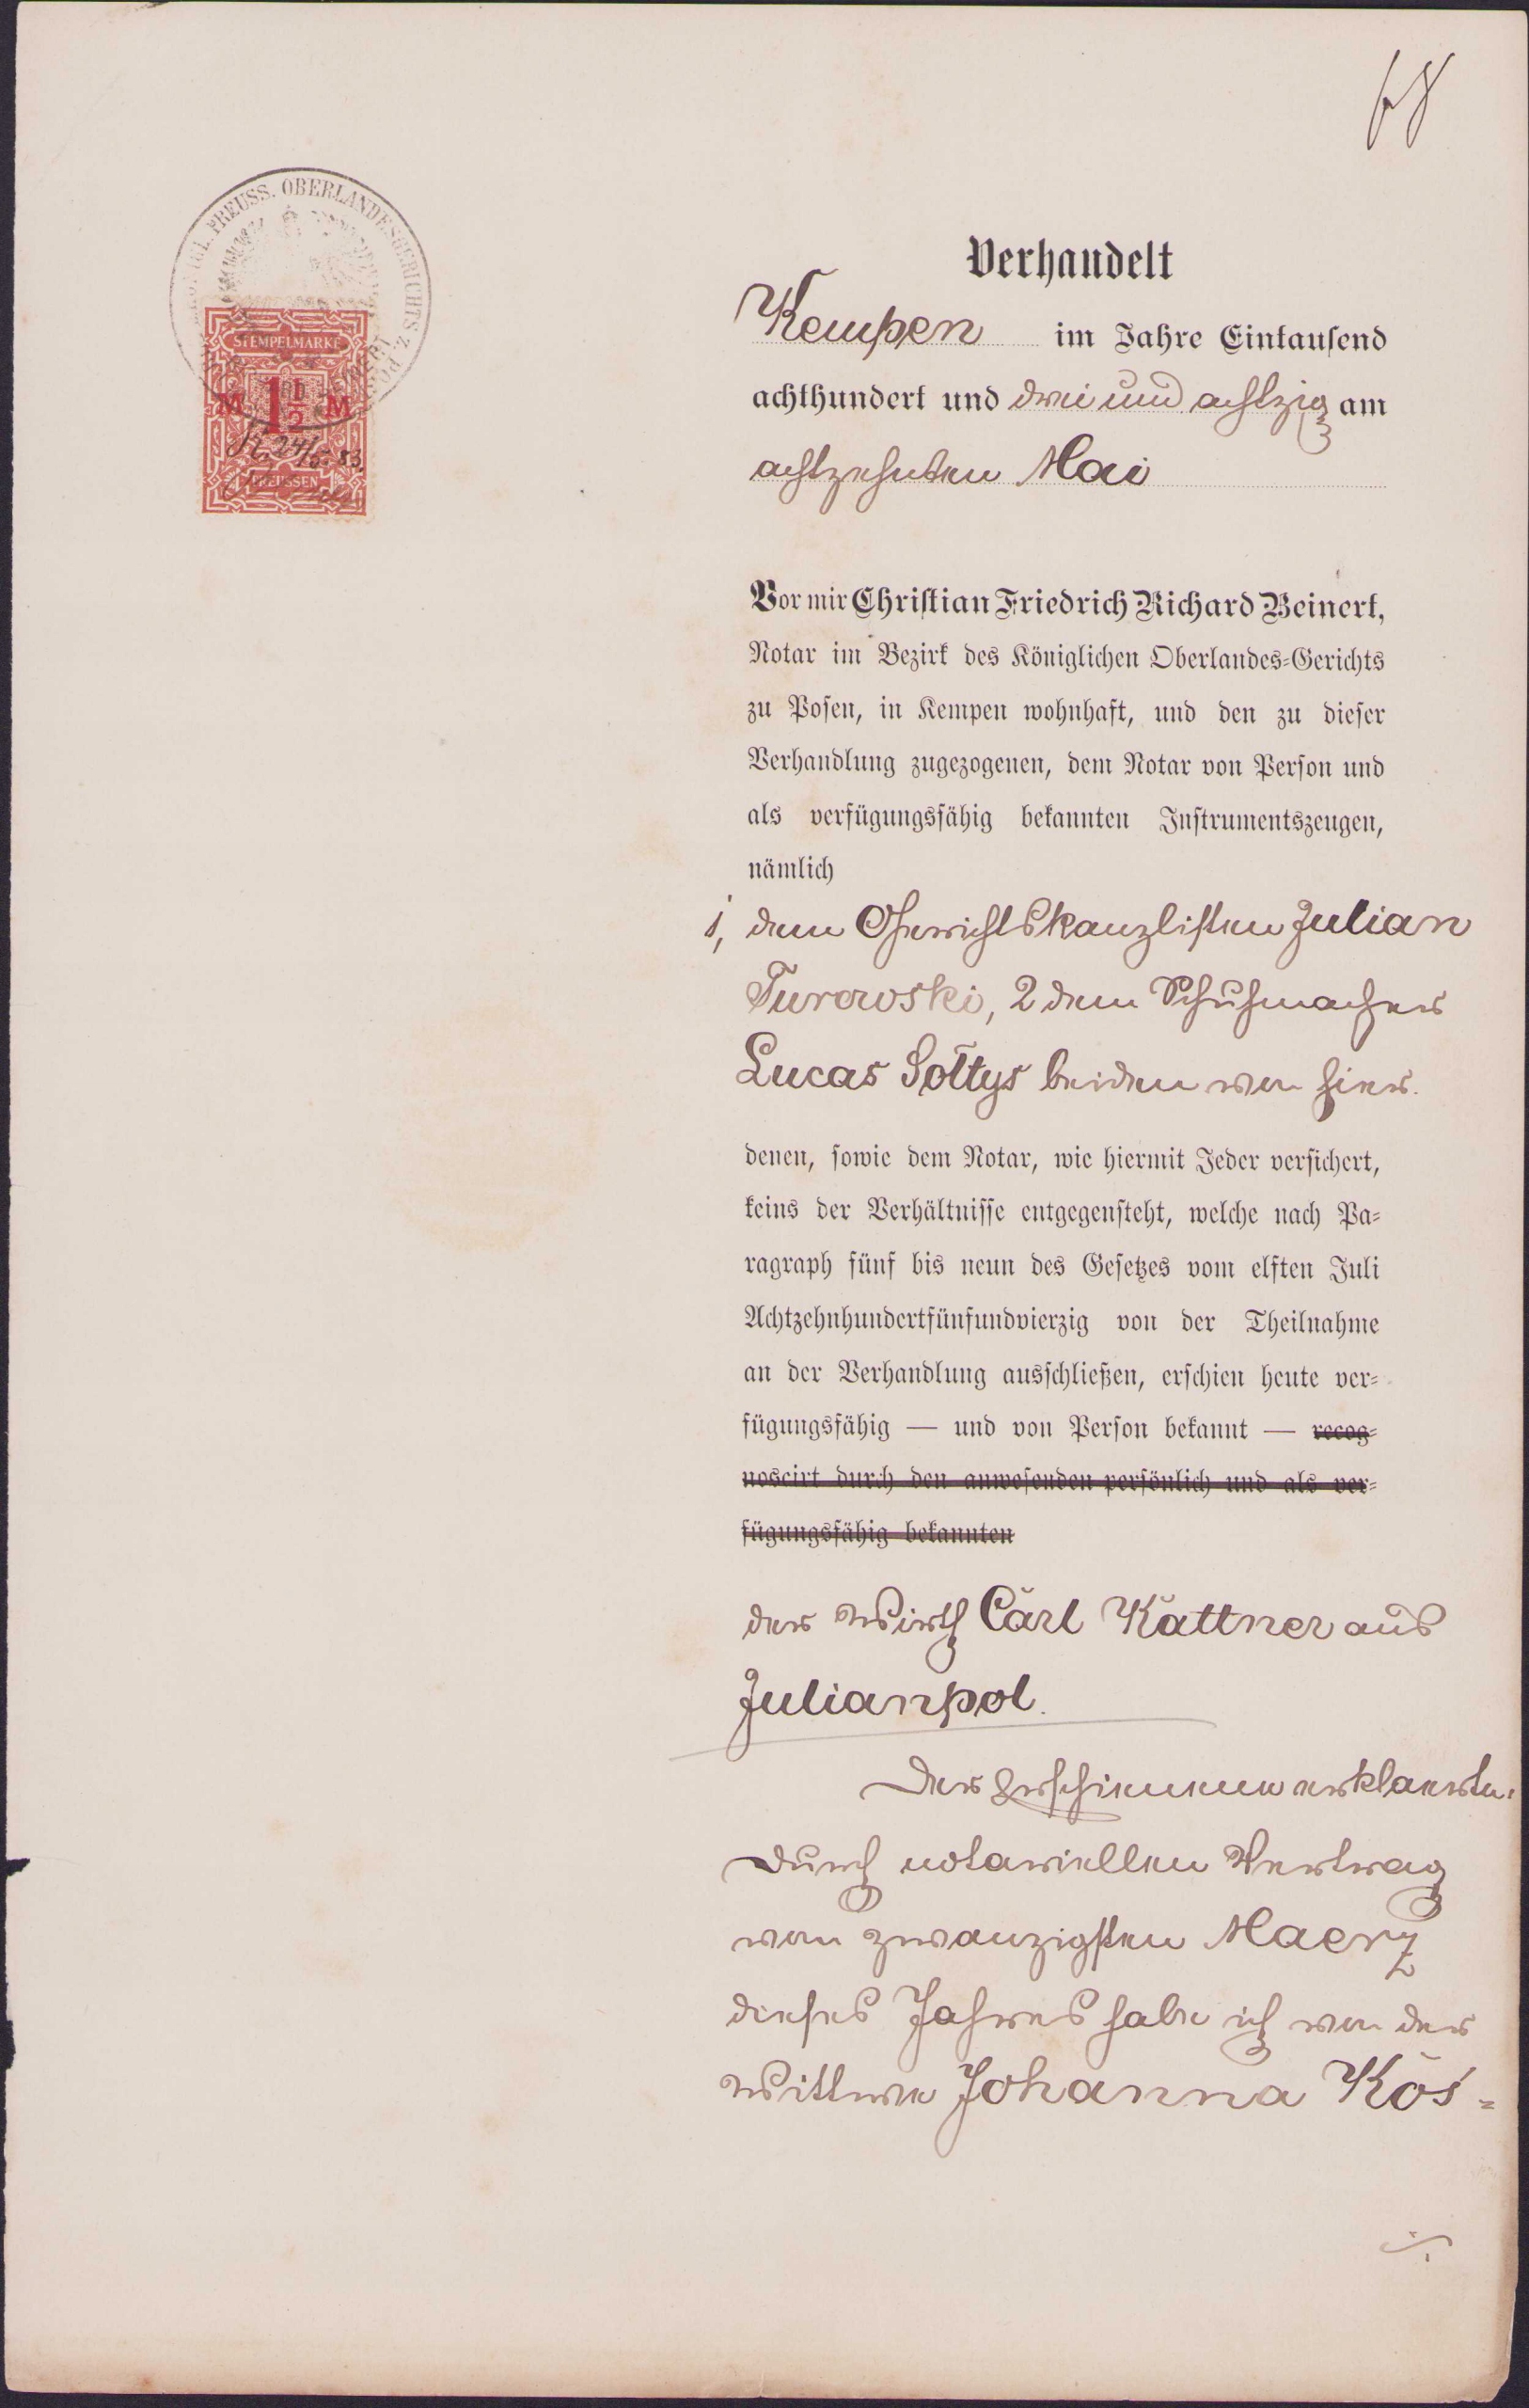 68
KÖNIGL. PREUSS. OBERLANDESGERICHTS Z. POSEN
STEMPELMARKE
M 1½ M
24/5. 83.
PREUSSEN
Verhandelt
Kempen im Jahre Eintausend
achthundert und drei und achtzig am
achtzehnten Mai
Vor mir Christian Friedrich Richard Beinert,
Notar im Bezirk des Königlichen Oberlandes-Gerichts
zu Posen, in Kempen wohnhaft, und den zu dieser
Verhandlung zugezogenen, dem Notar von Person und
als verfügungsfähig bekannten Instrumentszeugen,
nämlich
1, dem Gerichtskanzlisten Julian
Turowski, 2 dem Schuhmacher
Lucas Sołtys beiden von hier.
denen, sowie dem Notar, wie hiermit Jeder versichert,
keins der Verhältnisse entgegensteht, welche nach Pa-
ragraph fünf bis neun des Gesetzes vom elften Juli
Achtzehnhundertfünfundvierzig von der Theilnahme
an der Verhandlung ausschließen, erschien heute ver-
fügungsfähig — und von Person bekannt — recog-
noscirt durch den anwesenden persönlich und als ver-
fügungsfähig bekannten
der Wirth Carl Kattner aus
Julianpol.
Der Erschienene erklaerte:
Durch notariellen Vertrag
vom zwanzigsten Maerz
dieses Jahres habe ich von der
Wittwe Johanna Kos-